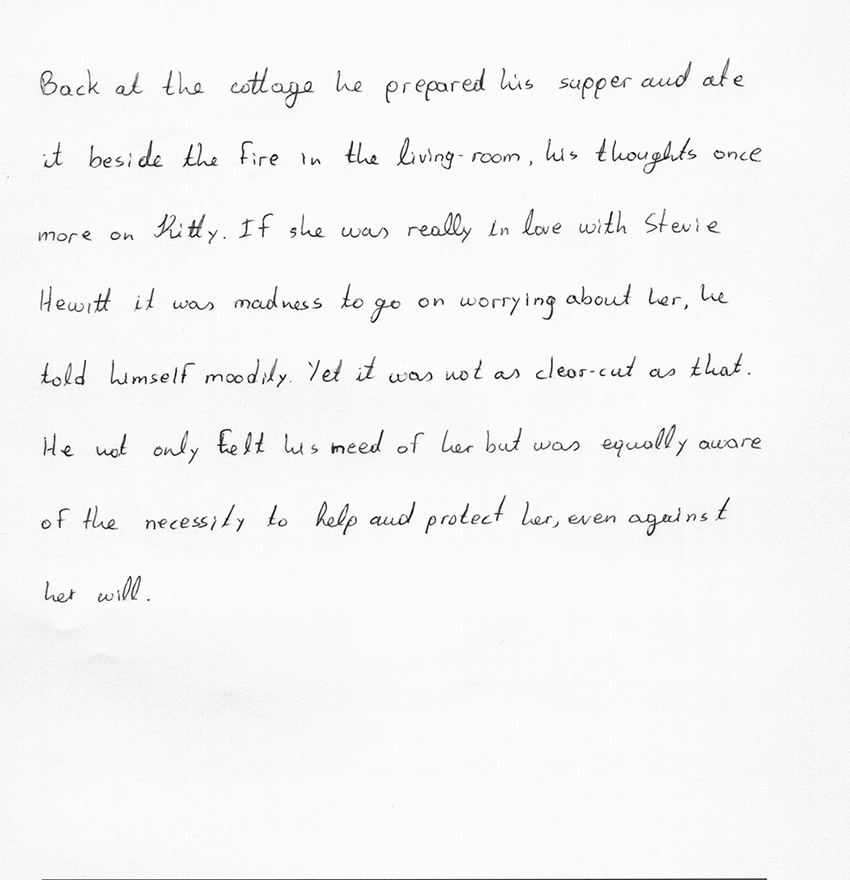 Back at the cottage he prepared his supper and ate
it beside the fire in the living-room, his thoughts once
more on Kitty. If she was really in love with Stevie
Hewitt it was madness to go on worrying about her, he
told himself moodily. Yet it was not as clear-cut as that.
He not only felt his need of her but was equally aware
of the necessity to help and protect her, even against
her will.